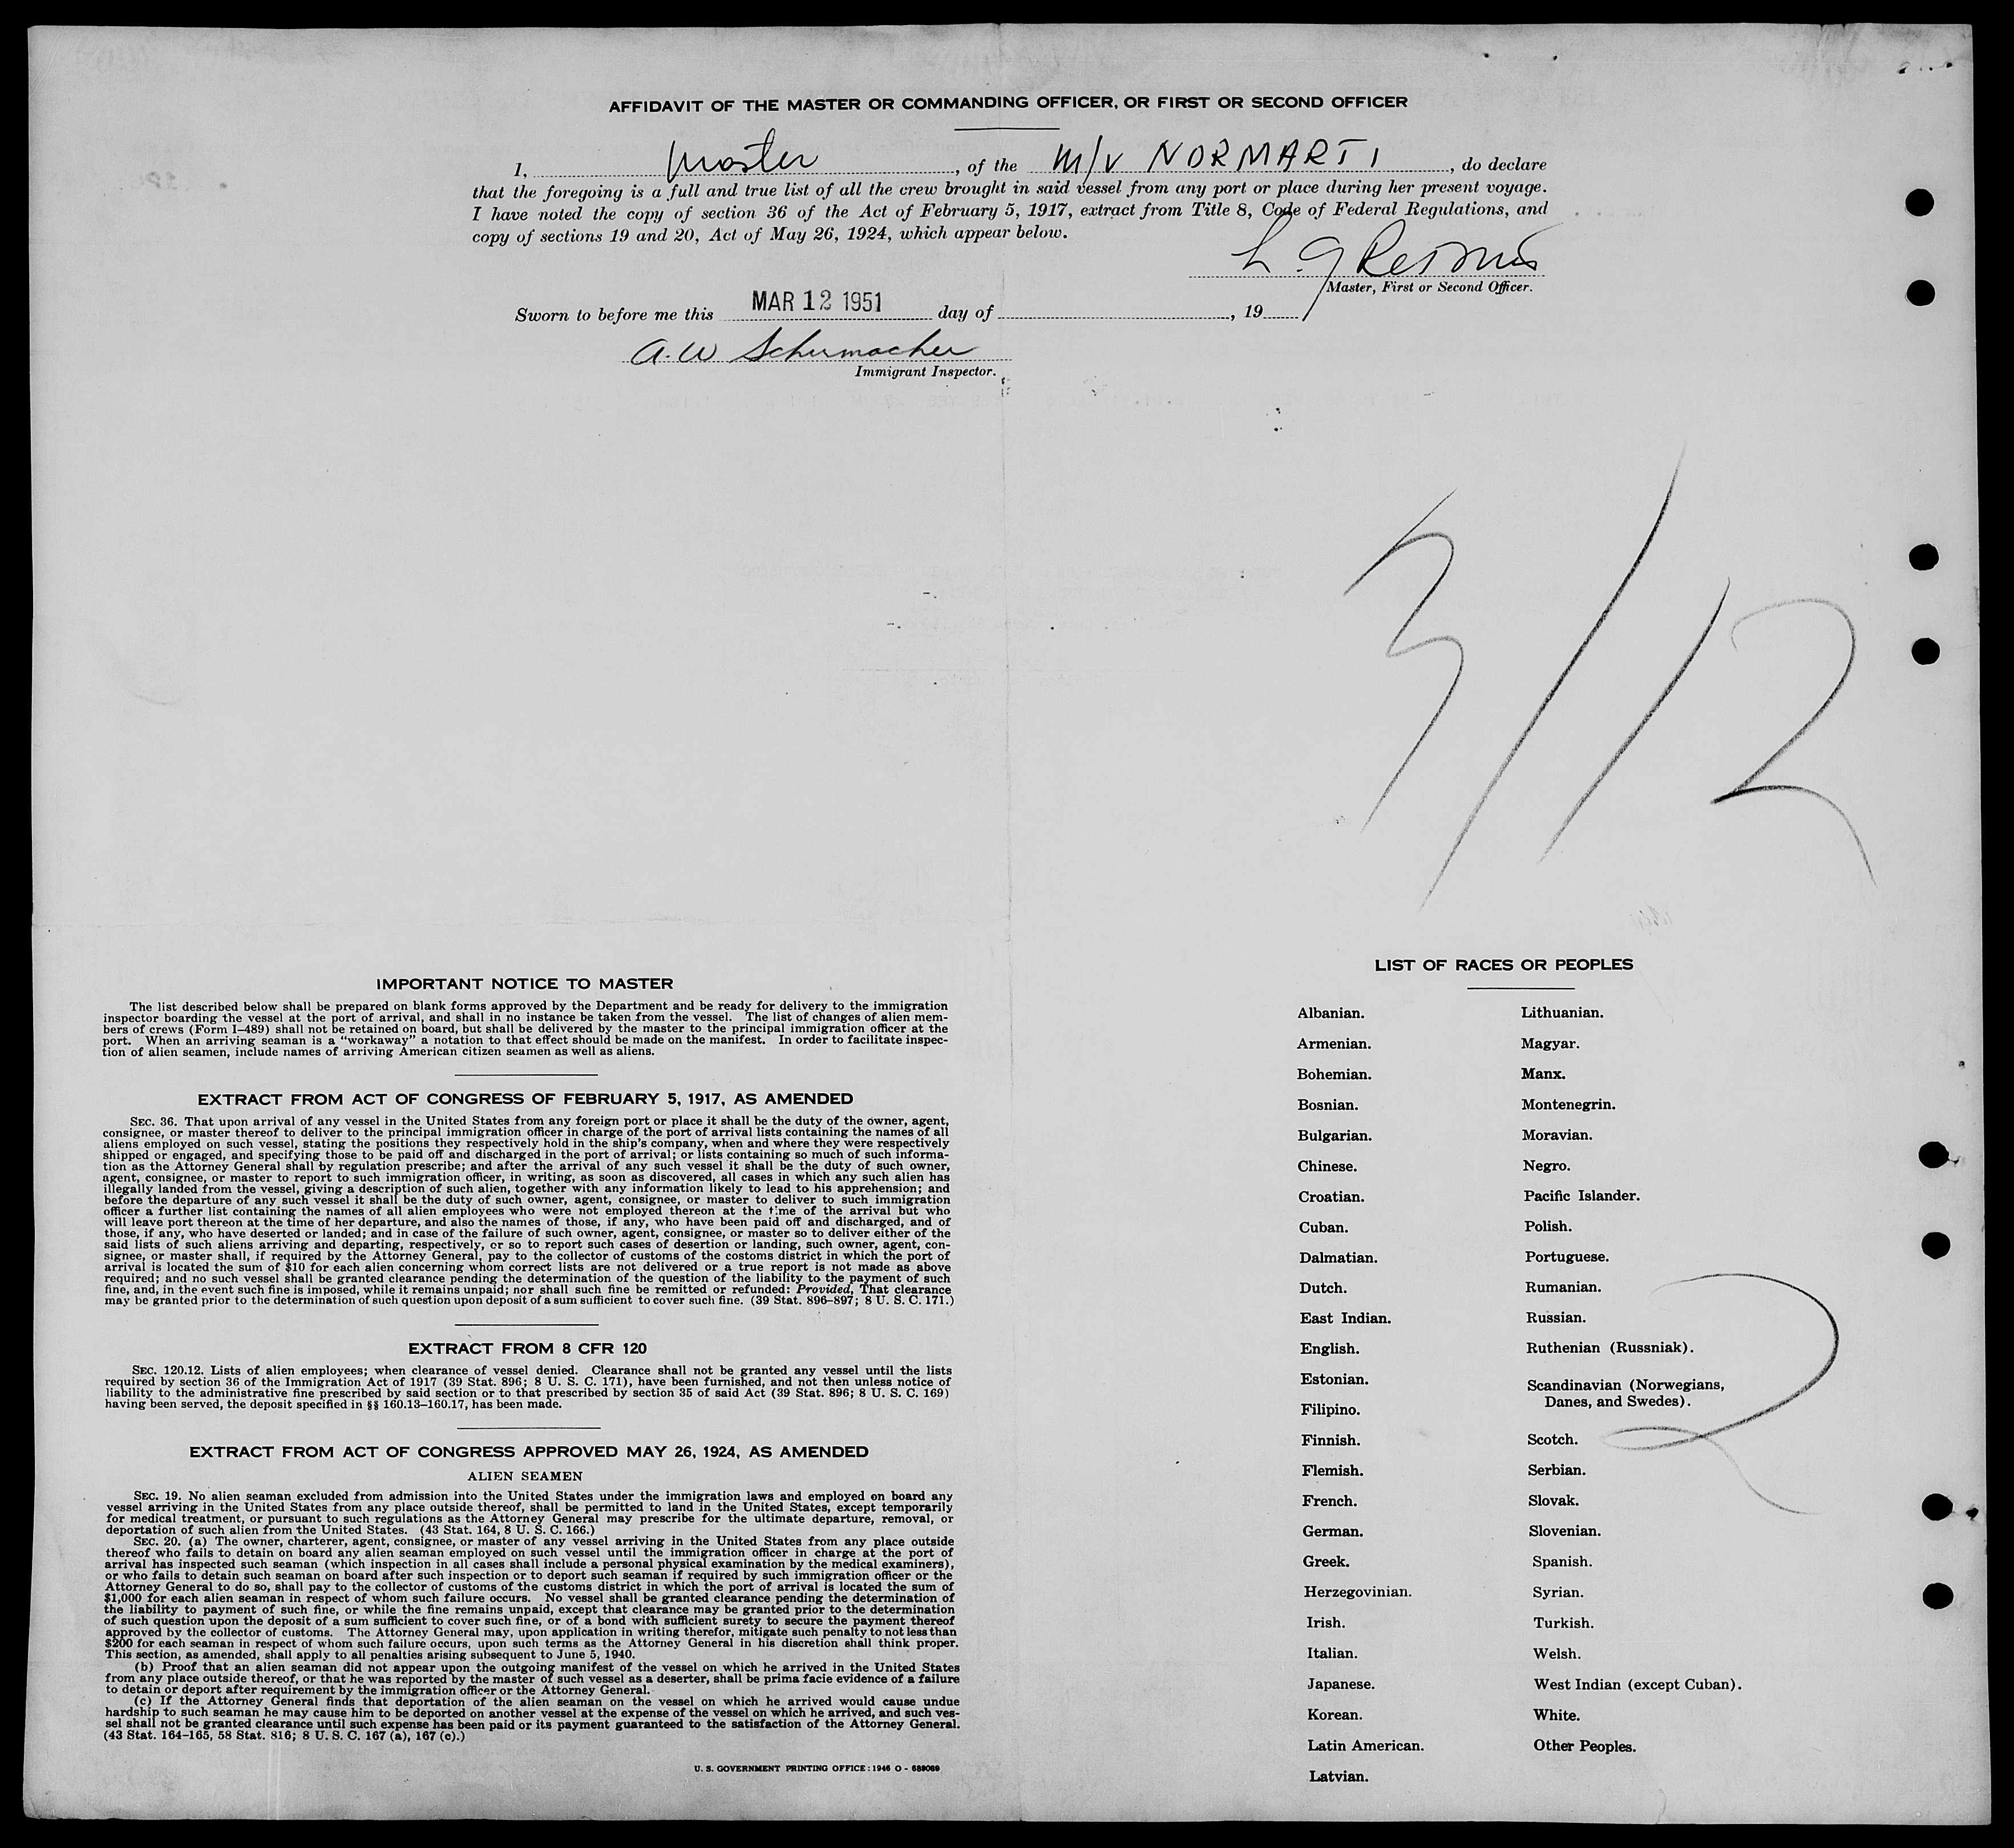 AFFIDAVIT OF THE MASTER OR COMMANDING OFFICER, OR FIRST OR SECOND OFFICER
I, master, of the M/V NORMARTI, do declare
that the foregoing is a full and true list of all the crew brought in said vessel from any port or place during her present voyage.
I have noted the copy of section 36 of the Act of February 5, 1917, extract from Title 8, Code of Federal Regulations, and
copy of sections 19 and 20, Act of May 26, 1924, which appear below.
Master, First or Second Officer.
Sworn to before me this MAR 12 1951 day of , 19
A. W Schumacher
Immigrant Inspector.
3/12
IMPORTANT NOTICE TO MASTER
The list described below shall be prepared on blank forms approved by the Department and be ready for delivery to the immigration
inspector boarding the vessel at the port of arrival, and shall in no instance be taken from the vessel. The list of changes of alien mem-
bers of crews (Form I-489) shall not be retained on board, but shall be delivered by the master to the principal immigration officer at the
port. When an arriving seaman is a "workaway" a notation to that effect should be made on the manifest. In order to facilitate inspec-
tion of alien seamen, include names of arriving American citizen seamen as well as aliens.
EXTRACT FROM ACT OF CONGRESS OF FEBRUARY 5, 1917, AS AMENDED
SEC. 36. That upon arrival of any vessel in the United States from any foreign port or place it shall be the duty of the owner, agent,
consignee, or master thereof to deliver to the principal immigration officer in charge of the port of arrival lists containing the names of all
aliens employed on such vessel, stating the positions they respectively hold in the ship's company, when and where they were respectively
shipped or engaged, and specifying those to be paid off and discharged in the port of arrival; or lists containing so much of such informa-
tion as the Attorney General shall by regulation prescribe; and after the arrival of any such vessel it shall be the duty of such owner,
agent, consignee, or master to report to such immigration officer, in writing, as soon as discovered, all cases in which any such alien has
illegally landed from the vessel, giving a description of such alien, together with any information likely to lead to his apprehension; and
before the departure of any such vessel it shall be the duty of such owner, agent, consignee, or master to deliver to such immigration
officer a further list containing the names of all alien employees who were not employed thereon at the time of the arrival but who
will leave port thereon at the time of her departure, and also the names of those, if any, who have been paid off and discharged, and of
those, if any, who have deserted or landed; and in case of the failure of such owner, agent, consignee, or master so to deliver either of the
said lists of such aliens arriving and departing, respectively, or so to report such cases of desertion or landing, such owner, agent, con-
signee, or master shall, if required by the Attorney General, pay to the collector of customs of the costoms district in which the port of
arrival is located the sum of $10 for each alien concerning whom correct lists are not delivered or a true report is not made as above
required; and no such vessel shall be granted clearance pending the determination of the question of the liability to the payment of such
fine, and, in the event such fine is imposed, while it remains unpaid; nor shall such fine be remitted or refunded: Provided, That clearance
may be granted prior to the determination of such question upon deposit of a sum sufficient to cover such fine. (39 Stat. 896-897; 8 U. S. C. 171.)
EXTRACT FROM 8 CFR 120
SEC. 120.12. Lists of alien employees; when clearance of vessel denied. Clearance shall not be granted any vessel until the lists
required by section 36 of the Immigration Act of 1917 (39 Stat. 896; 8 U. S. C. 171), have been furnished, and not then unless notice of
liability to the administrative fine prescribed by said section or to that prescribed by section 35 of said Act (39 Stat. 896; 8 U. S. C. 169)
having been served, the deposit specified in §§ 160.13-160.17, has been made.
EXTRACT FROM ACT OF CONGRESS APPROVED MAY 26, 1924, AS AMENDED
ALIEN SEAMEN
SEC. 19. No alien seaman excluded from admission into the United States under the immigration laws and employed on board any
vessel arriving in the United States from any place outside thereof, shall be permitted to land in the United States, except temporarily
for medical treatment, or pursuant to such regulations as the Attorney General may prescribe for the ultimate departure, removal, or
deportation of such alien from the United States. (43 Stat. 164, 8 U. S. C. 166.)
SEC. 20. (a) The owner, charterer, agent, consignee, or master of any vessel arriving in the United States from any place outside
thereof who fails to detain on board any alien seaman employed on such vessel until the immigration officer in charge at the port of
arrival has inspected such seaman (which inspection in all cases shall include a personal physical examination by the medical examiners),
or who fails to detain such seaman on board after such inspection or to deport such seaman if required by such immigration officer or the
Attorney General to do so, shall pay to the collector of customs of the customs district in which the port of arrival is located the sum of
$1,000 for each alien seaman in respect of whom such failure occurs. No vessel shall be granted clearance pending the determination of
the liability to payment of such fine, or while the fine remains unpaid, except that clearance may be granted prior to the determination
of such question upon the deposit of a sum sufficient to cover such fine, or of a bond with sufficient surety to secure the payment thereof
approved by the collector of customs. The Attorney General may, upon application in writing therefor, mitigate such penalty to not less than
$200 for each seaman in respect of whom such failure occurs, upon such terms as the Attorney General in his discretion shall think proper.
This section, as amended, shall apply to all penalties arising subsequent to June 5, 1940.
(b) Proof that an alien seaman did not appear upon the outgoing manifest of the vessel on which he arrived in the United States
from any place outside thereof, or that he was reported by the master of such vessel as a deserter, shall be prima facie evidence of a failure
to detain or deport after requirement by the immigration officer or the Attorney General.
(c) If the Attorney General finds that deportation of the alien seaman on the vessel on which he arrived would cause undue
hardship to such seaman he may cause him to be deported on another vessel at the expense of the vessel on which he arrived, and such ves-
sel shall not be granted clearance until such expense has been paid or its payment guaranteed to the satisfaction of the Attorney General.
(43 Stat. 164-165, 58 Stat. 816; 8 U. S. C. 167 (a), 167 (c).)
U. S. GOVERNMENT PRINTING OFFICE : 1946 O - 689089
LIST OF RACES OR PEOPLES
Albanian.
Armenian.
Bohemian.
Bosnian.
Bulgarian.
Chinese.
Croatian.
Cuban.
Dalmatian.
Dutch.
East Indian.
English.
Estonian.
Filipino.
Finnish.
Flemish.
French.
German.
Greek.
Herzegovinian.
Irish.
Italian.
Japanese.
Korean.
Latin American.
Latvian.
Lithuanian.
Magyar.
Manx.
Montenegrin.
Moravian.
Negro.
Pacific Islander.
Polish.
Portuguese.
Rumanian.
Russian.
Ruthenian (Russniak).
Scandinavian (Norwegians,
Danes, and Swedes).
Scotch.
Serbian.
Slovak.
Slovenian.
Spanish.
Syrian.
Turkish.
Welsh.
West Indian (except Cuban).
White.
Other Peoples.
2